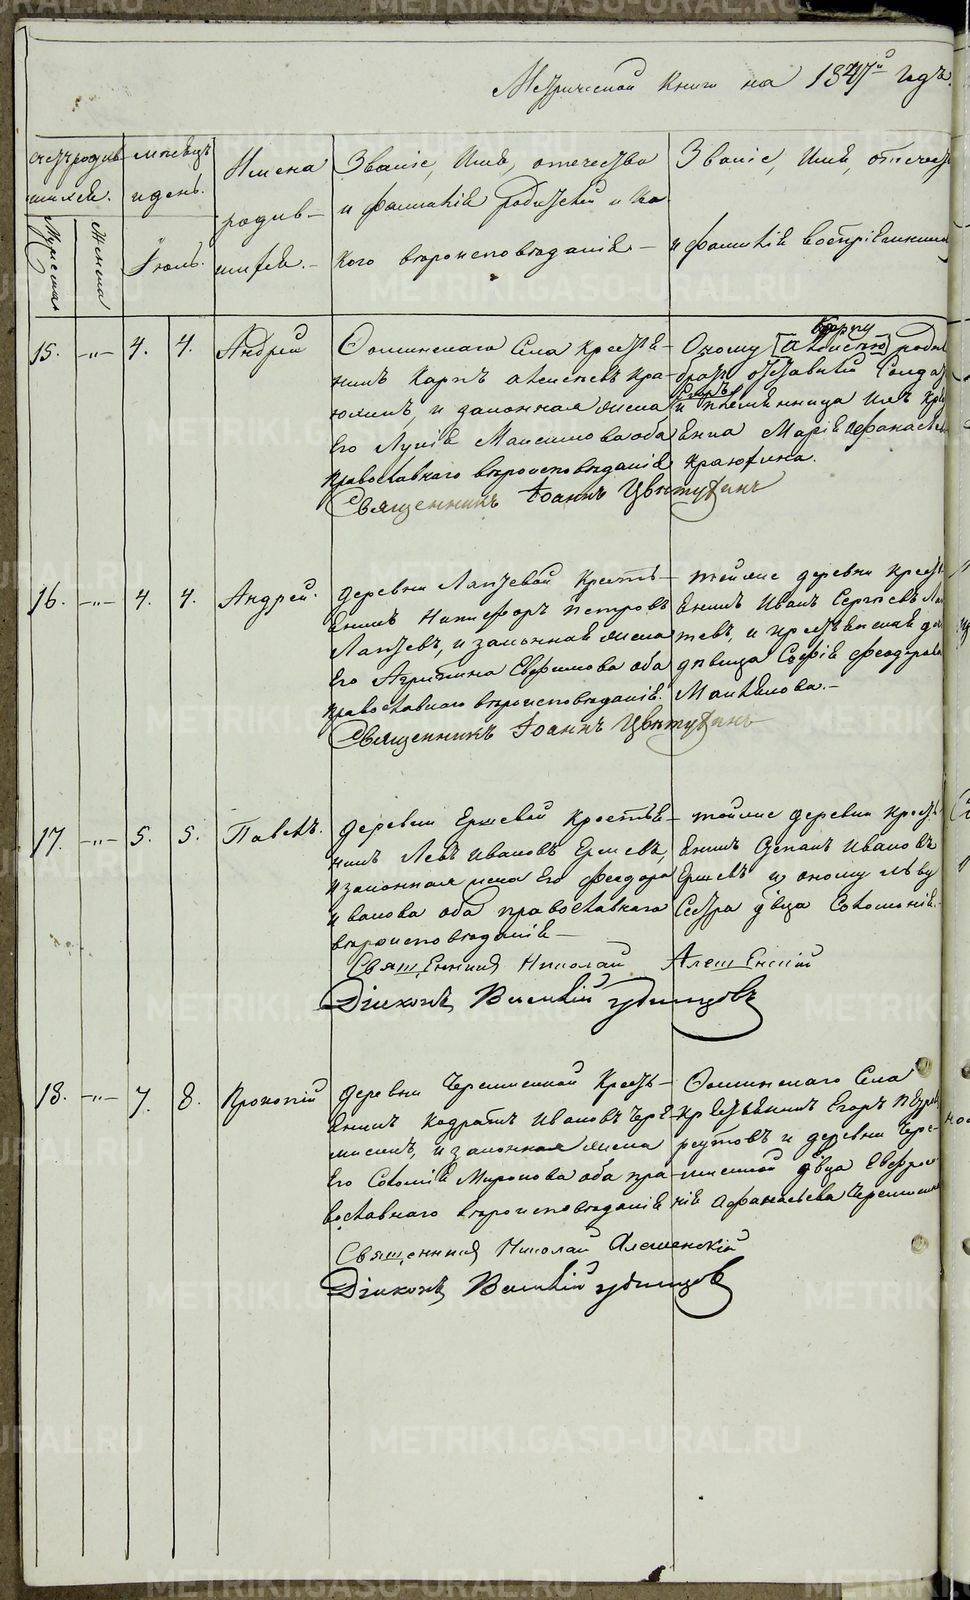 Метрической книги на 1847й годъ.
счетъ родив-
шихся.
мѣсяцъ
и день.
Имена
родив-
шихся.-
Званіе, Имя, отчество
и фамилія родителей и ка-
кого вѣроисповѣданія-
Званіе, Имя, отечест
и фамилія воспріемник
Мужеска
Женска
Іюль.
15. -„- 4. 4. Андрей
Фоминскаго Села Крестья-
нинъ Карпъ Алексѣевъ Кра-
юхинъ, и законная жена
Его Лукія Максимова оба
православнаго вѣроисповѣданія
Священникъ Іоаннъ Цвѣтухинъ
Оному Карпу [Алексѣю] родн
братъ отставный Солдат
и племянница ихъ кр
енка Марія Афанасьев
Краюхина.
16. -„- 4. 4. Андрей.
деревни Лаптевой Кресть-
янинъ Никифоръ Петровъ
Лаптевъ, и законная жена
Его Агрипина Евфимова оба
православнаго вѣроисповѣданія.
Священникъ Іоаннъ Цвѣтухинъ
тойже деревни Кресть
янинъ Иванъ Сергѣевъ Ла
тевъ, и крестьянская до
дѣвица Софія Феодорова
17. -„- 5. 5. Павелъ.
деревни Ершевой Крестья-
нинъ Левъ Ивановъ Ершевъ,
и законная жена Его Феодора
Иванова оба православнаго
вѣроисповѣданія-
Священникъ Николай Алешенскій
Діаконъ Василій Удинцовъ
тойже деревни Кресть
янинъ Степанъ Ивановъ
Ершевъ и оному Льву
Сестра д҃вца Соломонія.
18. -„- 7. 8. Прокопій
деревни Черемисской Кресть-
янинъ Кодратъ Ивановъ Чере-
мисинъ, и законная жена
Его Соломія Миронова оба пра-
вославнаго вѣроисповѣданія
Священникъ Николай Алешенскій
Діаконъ Василій Удинцов
Фоминскаго Села
крестьянинъ Егоръ Петров
реутовъ и деревни Чере-
мисской д҃вца Евфрос
нія Афанасьева Черемисин